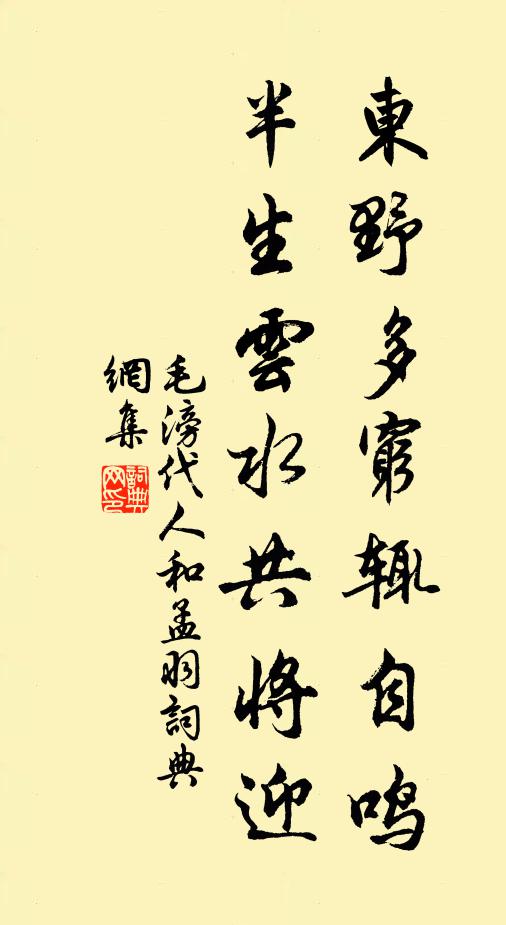 東野多窮輒自鸣
半生雲水共將迎
毛滂代人和孟羽詞典
網集
詞典网印